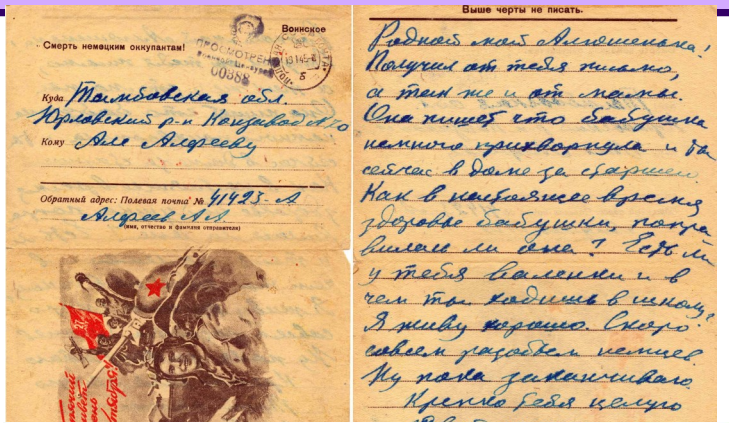 Воинское
Смерть немецким оккупантам!
ПРОСМОТРЕНО
00388
Куда Тамбовская обл.
Юрловский р-н Конзавод №
Кому Але Алфееву
Обратный адрес: Полевая почта № 41423-А
Алфеев А.А.
(имя, отчество и фамилия отправителя)
Выше черты не писать.
Родной мой Алюшенька!
Получил от тебя письмо,
а так же и от мамы.
Она пишет что бабушка
немного прихворнула и ты
сейчас в доме за старшего.
Как в настоящее время
здоровье бабушки, попра
вилась ли она? Есть ли
у тебя валенки и в
чем ты ходишь в школу?
Я живу хорошо. Скоро
совсем разобьем немцев.
Ну пока заканчиваю.
Крепко тебя целую